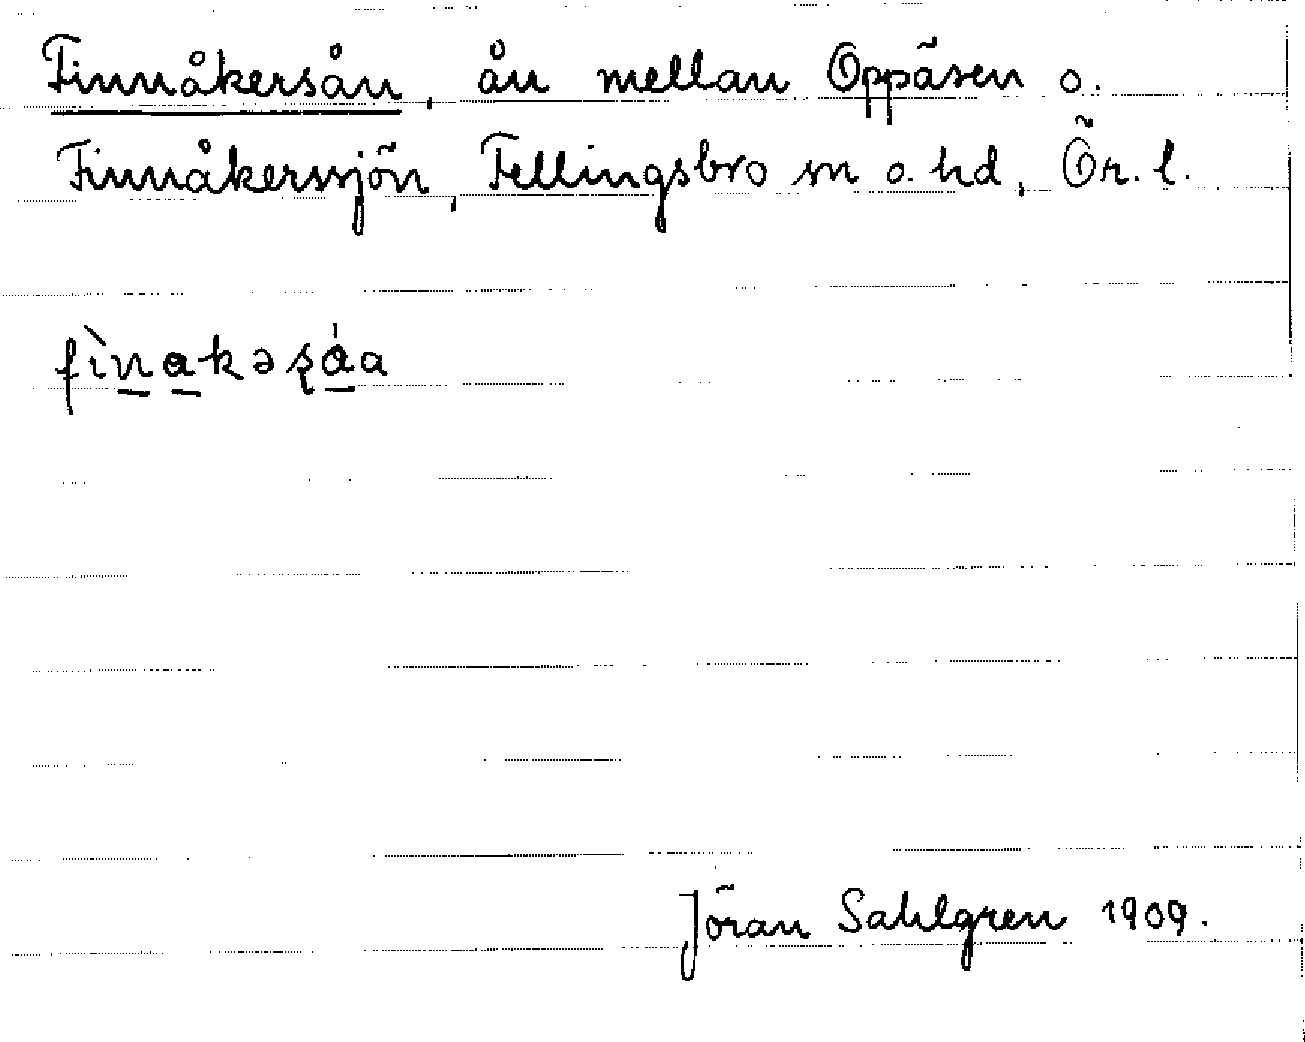 Finnåkersån, ån mellan Oppäsen o.
Finnåkerssjön, Fellingsbro sn o. hd, Ör. l.
fìn̲a̲kəʂá̲a
Jöran Sahlgren 1909.